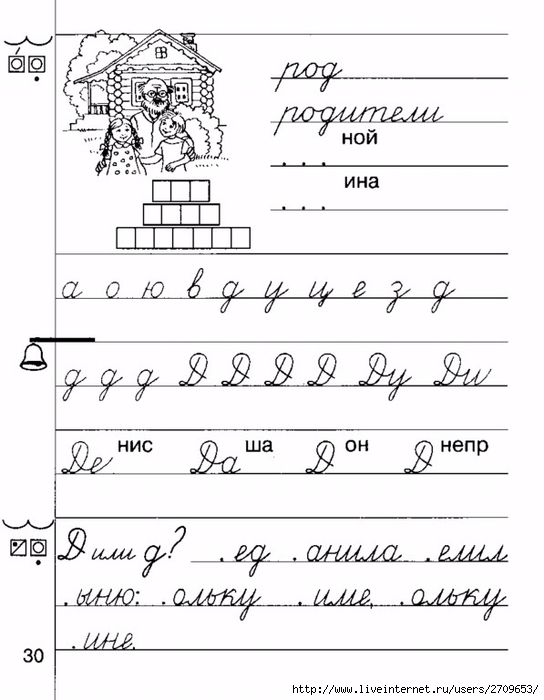 род
родители
ной
. . .
ина
. . .
а о ю в д у щ е з д
д д д Д Д Д Д Ду Ди
Денис Даша Дон Днепр
Д или д? .ед .анила .елил
.ыню: .ольку .име, .ольку
.ине.
30
http://www.liveinternet.ru/users/2709653/